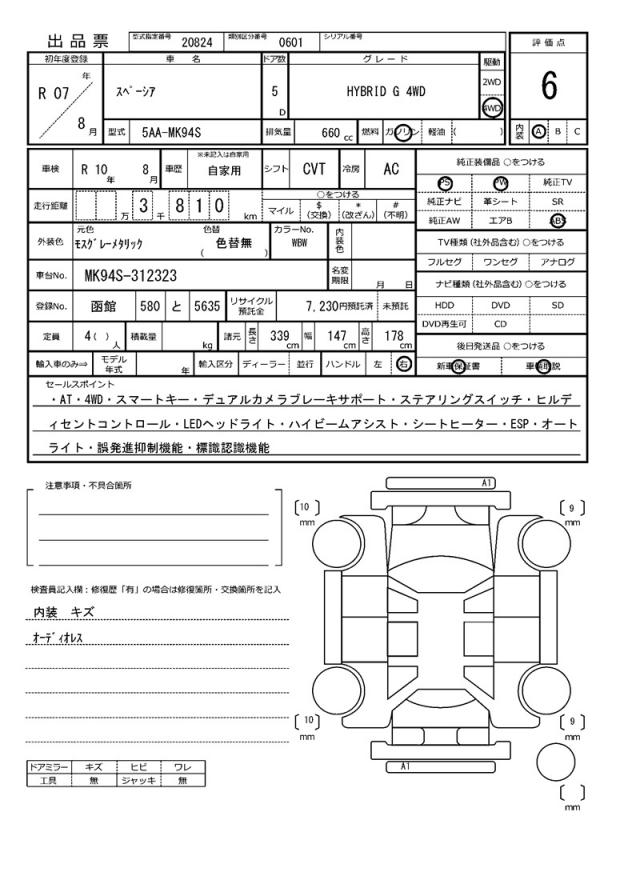 出品票 型式指定番号 20824 類別区分番号 0601 シリアル番号
評価点
初年度登録 車名 ドア数 グレード 駆動
R 07 年 8 月 スペーシア 5 D HYBRID G 4WD 2WD 4WD 6
型式 5AA-MK94S 排気量 660 cc 燃料 ガソリン 軽油 ( ) 内装 A B C
車検 R 10 年 8 月 車歴 ※未記入は自家用 自家用 シフト CVT 冷房 AC
純正装備品 ○をつける
PS PW 純正TV
純正ナビ 革シート SR
純正AW エアB ABS
走行距離 万 3 千 8 1 0 km ○をつける
マイル $(交換) *(改ざん) #(不明)
外装色 元色 モスグレーメタリック 色替 ( 色替無 ) カラーNo. WBW 内装色
TV種類 (社外品含む) ○をつける
フルセグ ワンセグ アナログ
車台No. MK94S-312323 名変期限 月 日
ナビ種類 (社外品含む) ○をつける
HDD DVD SD
DVD再生可 CD
登録No. 函館 580 と 5635 リサイクル預託金 7,230円預託済 未預託
定員 4( )人 積載量 kg 諸元 長さ 339 cm 幅 147 cm 高さ 178 cm
後日発送品 ○をつける
新車保証書 車輌取説
輸入車のみ⇒ モデル年式 年 輸入区分 ディーラー 並行 ハンドル 左 右
セールスポイント
・AT・4WD・スマートキー・デュアルカメラブレーキサポート・ステアリングスイッチ・ヒルデ
ィセントコントロール・LEDヘッドライト・ハイビームアシスト・シートヒーター・ESP・オート
ライト・誤発進抑制機能・標識認識機能
注意事項・不具合箇所
検査員記入欄：修復歴「有」の場合は修復箇所・交換箇所を記入
内装 キズ
オーディオレス
ドアミラー キズ ヒビ ワレ
工具 無 ジャッキ 無
A1
[10] mm
[9] mm
[10] mm
[9] mm
A1
[ ] mm